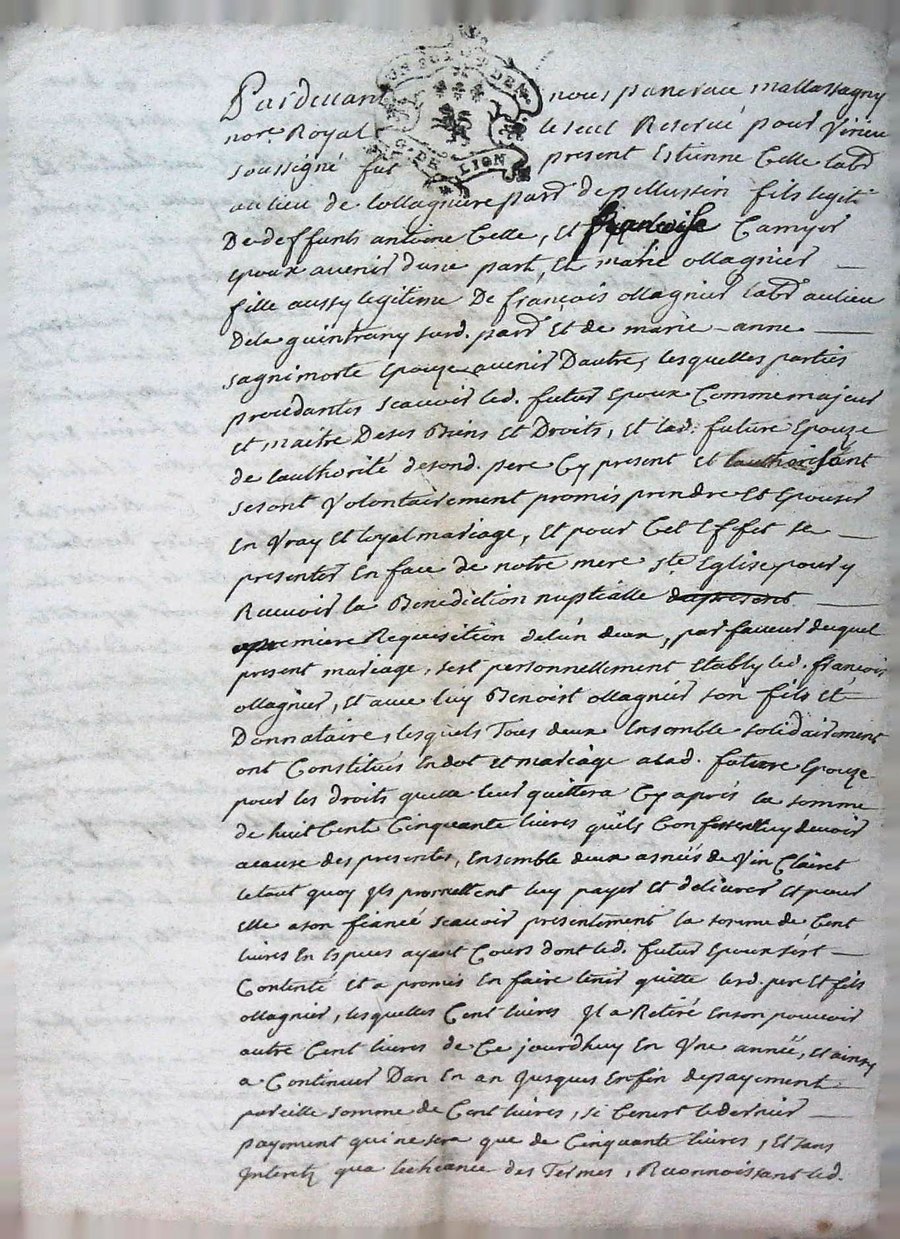 Pardevant nous pancrace mallassagny
nore. Royal le seul Reservé pour Virieu
soussigné fut present Estienne Celle labr
au lieu de Lollagniere parr de pellussin fils legiti
De deffunts antoine Celle, et françoise
Epoux avenir d'une part, Et marie ollagnier
fille aussy legitime De françois ollagnier labr au lieu
Dela guintrany surd. parr Et de marie-anne
sagnimorte Epouze avenir Dautre, lesquelles parties
procedantes scavoir led. futur Epoux Comme majeur
et maitre Deses Biens et Droits, et lad. future Epouze
de lauthorité desond. pere Cy present et lauthorisant
se sont Volontairement promis prendre et Epouser
En Vray et loyal mariage, Et pour Cet Effet se
presenter En face de notre mere ste Eglise pour y
Recevoir la Benediction nuptialle
premiere Requisition delun deux, par faveur duquel
present mariage, sest personnellement Etably led. françois
ollagnier, et avec luy Benoist ollagnier son fils et
Donnataire, lesquels Tous deux Ensemble solidairement
ont Constitués En dot et mariage alad. future Epouze
pour les droits quelle leur quittera Cy après la somme
de huit Cent Cinquante livres qu'ils Confessent luy devoir
acause des presentes, Ensemble deux asnés de Vin Clairet
letout quoy Ils promettent luy payer et delivrer et pour
elle a son fiancé scavoir presentement la somme de Cent
livres En Especes ayant Cours dont led. futur Epoux s'est
Contenté et a promis En faire tenir quitte lesd. pere et fils
ollagnier, lesquelles Cent livres Il a Retiré Enson pouvoir
autre Cent livres de Ce jourdhuy En Une année, et ainsy
a Continuer Dan En an Jusques Enfin depayement
pareille somme de Cent livres, si Cenest ledernier
payement qui ne sera que de Cinquante livres, Et sans
Interetz qua lecheance des Termes, Reconnoissant led.